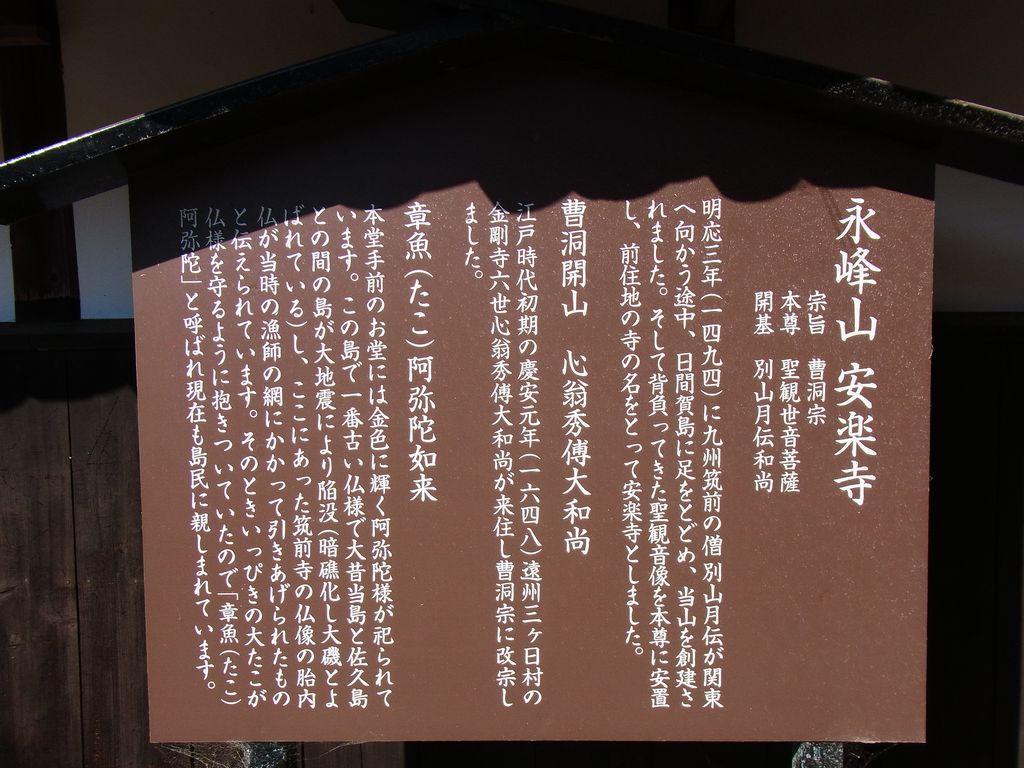 永峰山 安楽寺
宗旨 曹洞宗
本尊 聖観世音菩薩
開基 別山月伝和尚
明応三年(一四九四)に九州筑前の僧 別山月伝が関東
へ向かう途中、日間賀島に足をとどめ、当山を創建さ
れました。そして背負ってきた聖観音像を本尊に安置
し、前住地の寺の名をとって安楽寺としました。
曹洞開山 心翁秀傳大和尚
江戸時代初期の慶安元年(一六四八)遠州三ヶ日村の
金剛寺六世心翁秀傳大和尚が来住し曹洞宗に改宗し
ました。
章魚(たこ)阿弥陀如来
本堂手前のお堂には金色に輝く阿弥陀様が祀られて
います。この島で一番古い仏様で大昔当島と佐久島
との間の島が大地震により陥没(暗礁化し大磯とよ
ばれている)し、ここにあった筑前寺の仏像の胎内
仏が当時の漁師の網にかかって引きあげられたもの
と伝えられています。そのときいっぴきの大たこが
仏様を守るように抱きついていたので「章魚(たこ)
阿弥陀」と呼ばれ現在も島民に親しまれています。